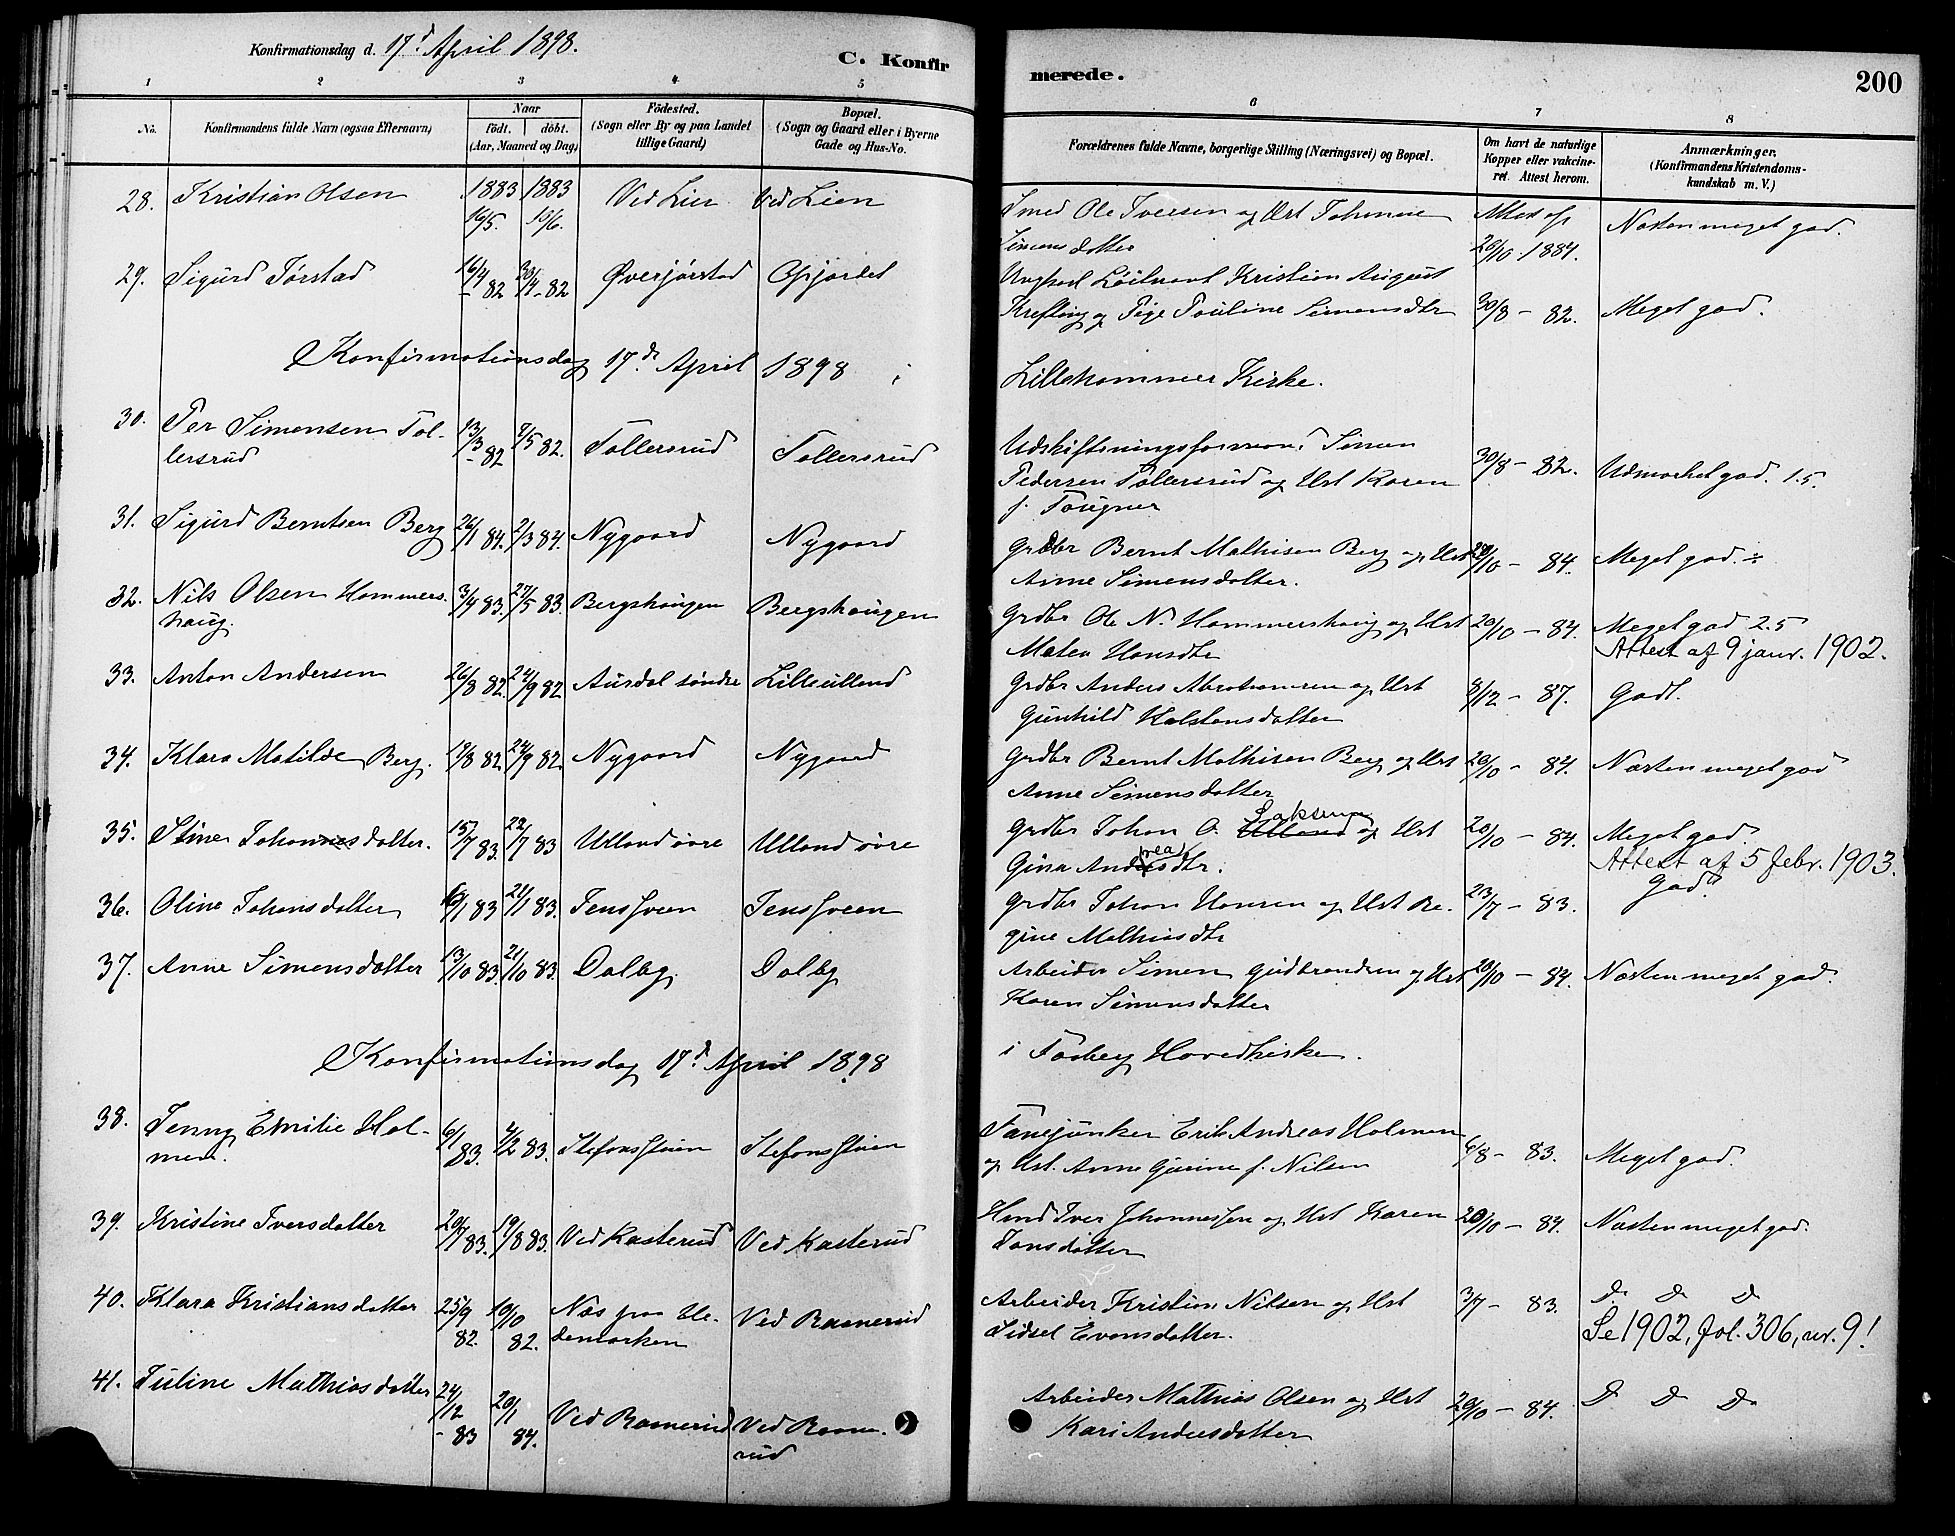 Konfirmationsdag d. 17d April 1898.
C. Konfirmerede.
200
1 2 3 4 5 6 7 8
No. Konfirmandens fulde Navn (ogsaa Efternavn) Naar födt. döbt. (Aar, Maaned og Dag) Födested. (Sogn eller By og paa Landet tillige Gaard) Bopæl. (Sogn og Gaard eller i Byerne Gade og Hus-No. Forældrenes fulde Navne, borgerlige Stilling (Næringsvei) og Bopæl. Om havt de naturlige Kopper eller vakcineret. Attest herom. Anmærkninger. (Konfirmandens Kristendomskundskab m. V.)
28. Kristian Olsen 1883 16/5. 1883 10/6. Ved Lien Ved Lien Smed Ole Iversen og Hst Johanne Attest af Næsten meget god.
Simensdotter 20/10 1884.
29. Sigurd Jørstad 16/4 82 30/4 - 82 Øverjørstad Gjørdet Ungkarl Löitnant Kristian August
Krefting og Pige Pauline Simensdtr 30/8 - 82. Meget god.
Konfirmationsdag 17de April 1898 i Lillehammer Kirke.
30. Per Simensen Tol- 13/3 - 82 7/5 82. Tollersrud Tollersrud Udskiftningsformand Simen
lersrud Pedersen Tollersrud og Hst Karen 30/8 - 82. Udmærket god. 1.5.
f. Tougner
31. Sigurd Berntsen Berg 26/1 84. 2/3 84. Nygaard Nygaard Grdbr Bernt Mathisen Berg og Hst 20/10 - 84. Meget god.
Anne Simensdatter.
32. Nils Olsen Hammers- 3/4 83. 27/5 83. Bergshaugen Bergshaugen Grdbr Ole N. Hammershaug og Hst 20/10 - 84. Meget god 2.5
haug. Matea Hansdtr Attest af 9 janr. 1902.
33. Anton Andersen 26/8 82. 24/9 82. Aurdal søndre Lilleulland Grdbr Anders Abrahamsen og Hst 8/12 - 87. Godt.
Gunhild Halstensdatter
34. Klara Matilde Berg. 19/8 82 24/9 82. Nygaard Nygaard Grdbr Bernt Mathisen Berg og Hst 20/10 - 84. Næsten meget god
Anne Simensdatter
35. Stine Johannesdatter. 15/7 83. 22/7 83 Ulland øvre Ulland øvre Grdbr Johan O. Ulland og Hst 20/10 - 84. Meget god.
Gina Andreasdtr. Attest af 5 febr. 1903.
36. Oline Johansdatter 13/1 83 21/1 83. Jenssveen Jenssveen Grdbr Johan Hansen og Hst Re- 23/7 - 83. God.
gine Mathiasdtr
37. Anne Simensdatter 13/10 83. 21/10 83. Dalby Dalby Arbeider Simen Gudbrandsen og Hst 20/10 - 84. Næsten meget god.
Karen Simensdatter
Konfirmationsdag 17d April 1898 i Faaberg Hovedkirke.
38. Jenny Emilie Hol- 6/1 83. 4/2 83. Stefansstuen Stefansstuen Fanejunker Erik Andreas Holmen
men. og Hst. Anne Gurine f. Nilsen 6/8 - 83. Meget god.
39. Kristine Iversdatter 20/7 83. 19/8 83. Ved Kasterud Ved Kasterud Hmd Iver Johannessen og Hst Karen 20/10 - 84. Næsten meget god.
Jonsdatter
40. Klara Kristiansdatter 25/9 82. 10/10 82. Næs paa He- Ved Baanerud Arbeider Kristian Nilsen og Hst 3/7 - 83. D D D
demarken Sidsel Evensdatter. Se 1902, fol. 306, nr. 9!
41. Juline Mathiasdatter 24/12 - 83 20/1 84. Ved Baanerud Ved Baane- Arbeider Mathias Olsen og Hst 20/10 - 84. D D D
rud Kari Andersdatter